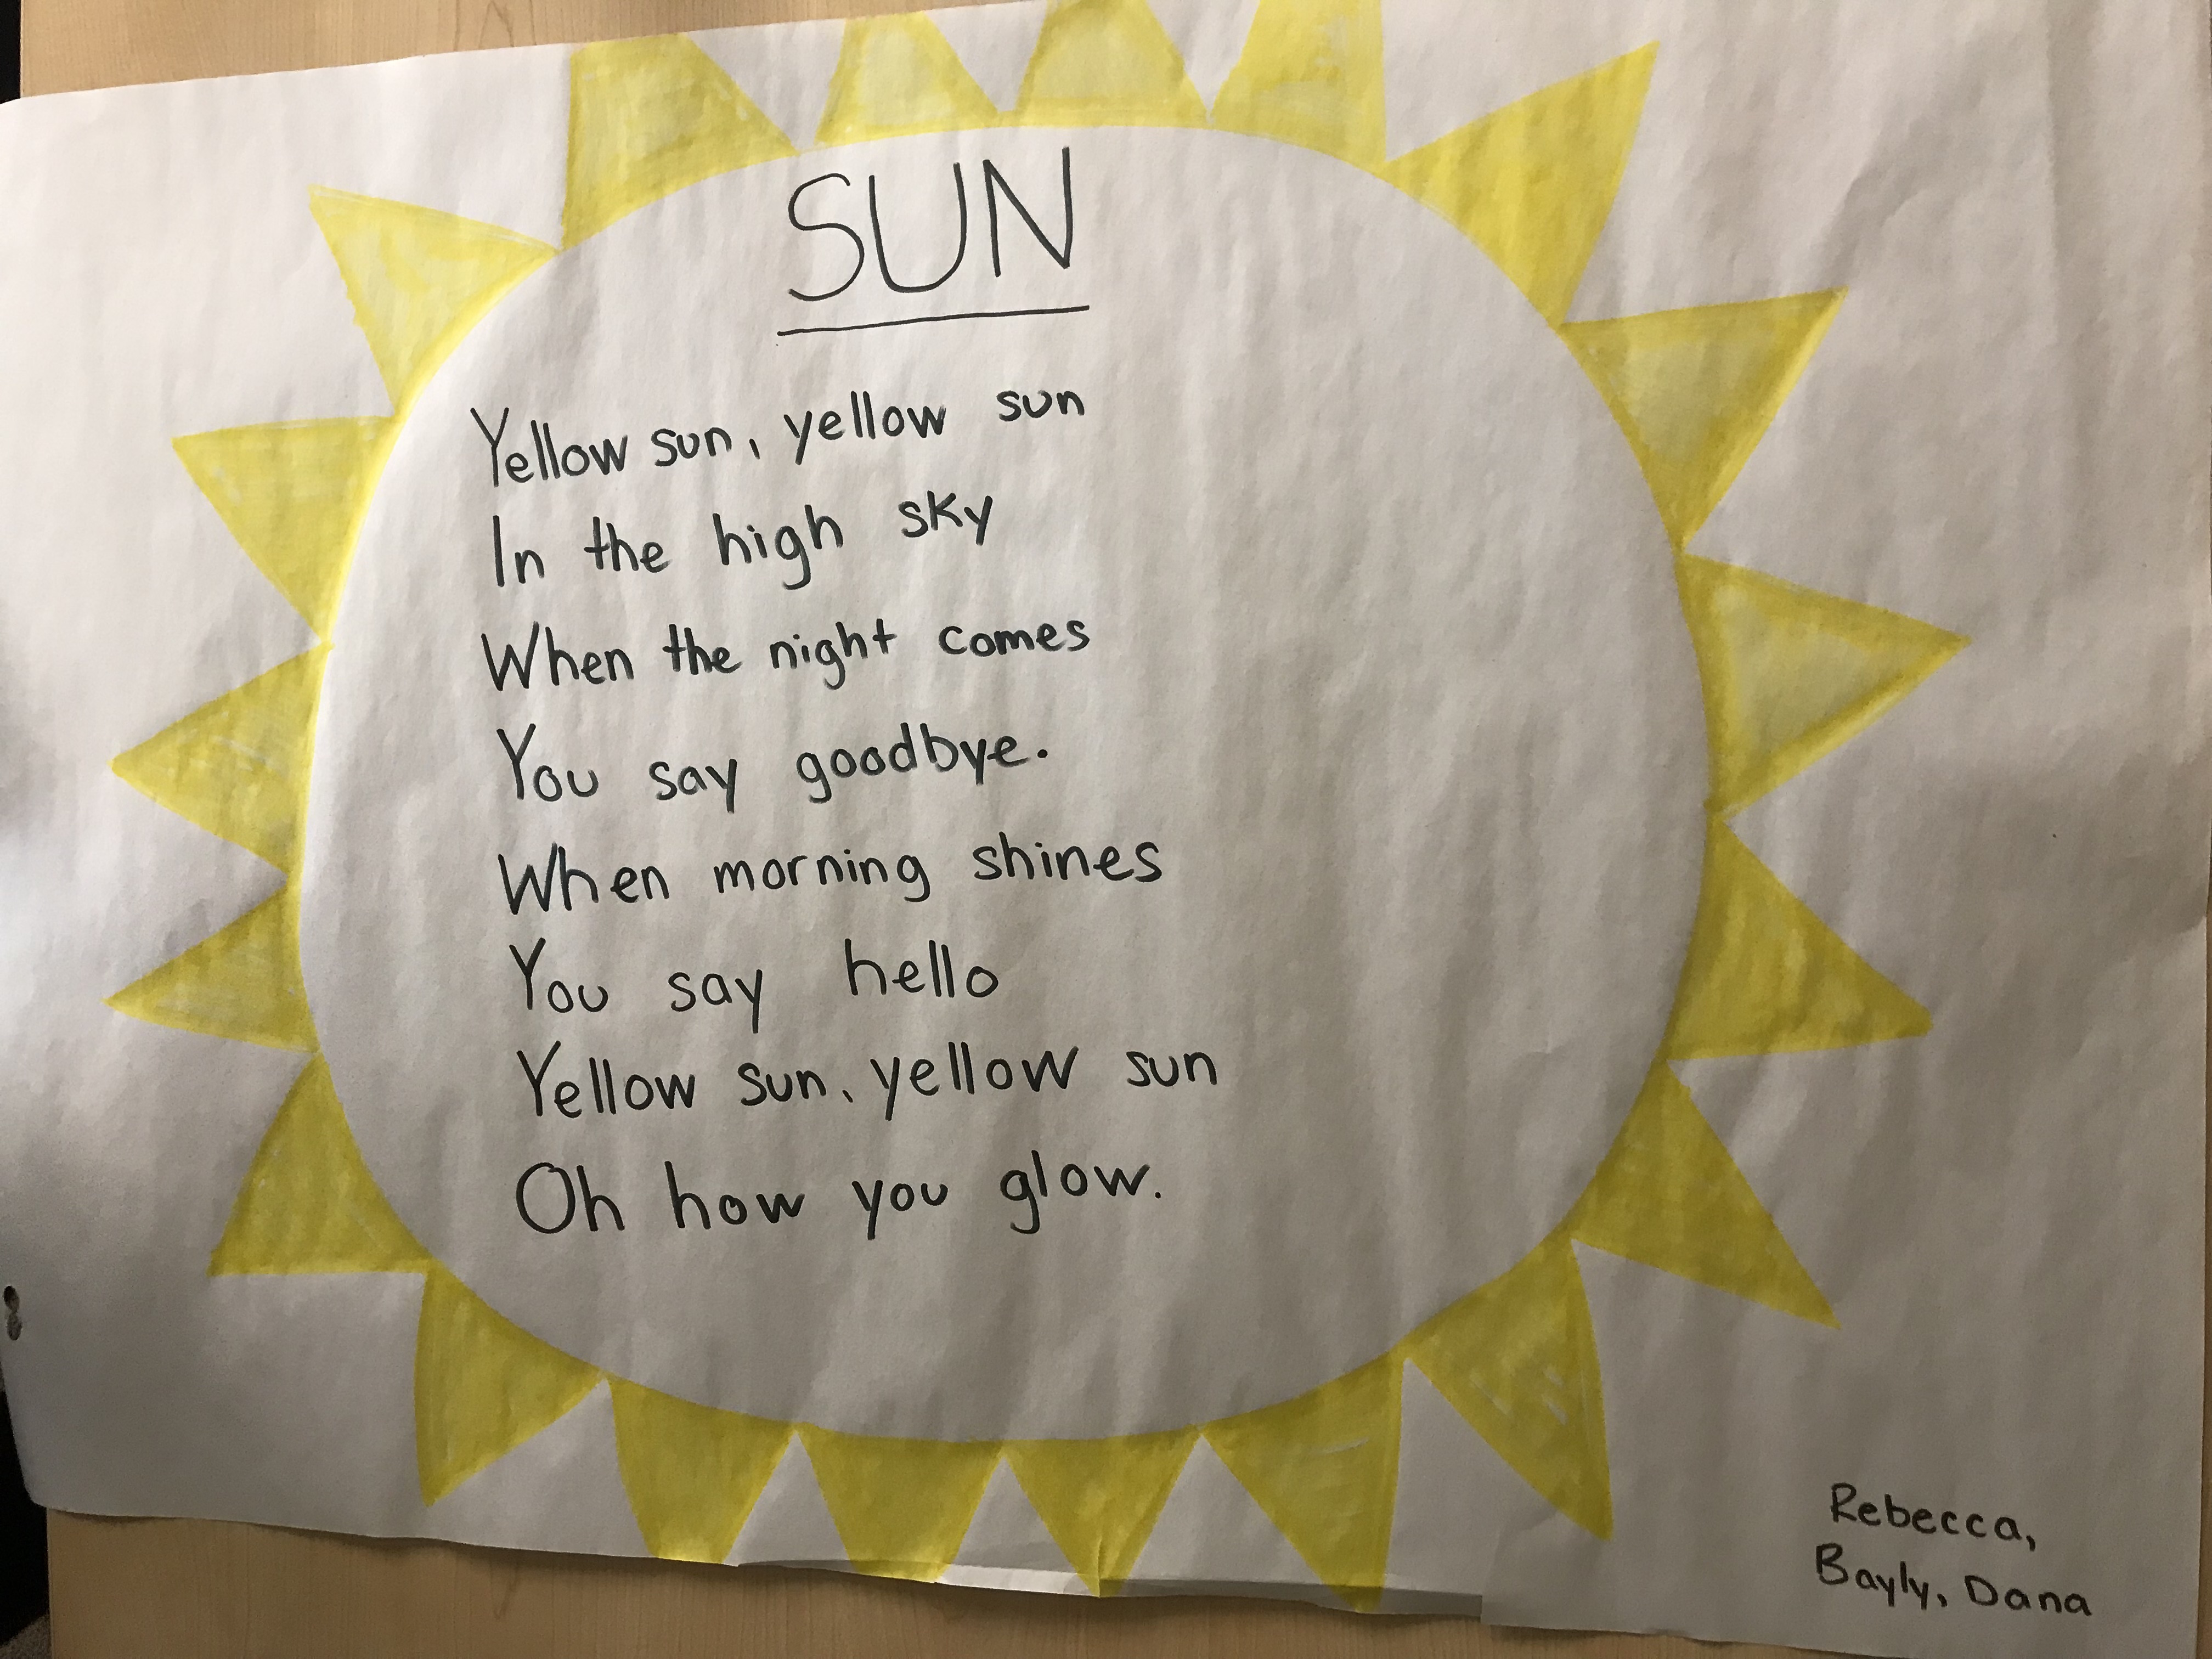 SUN
Yellow sun, yellow sun
In the high sky
When the night comes
You say goodbye.
When morning shines
You say hello
Yellow sun, yellow sun
Oh how you glow.
Rebecca,
Bayly, Dana